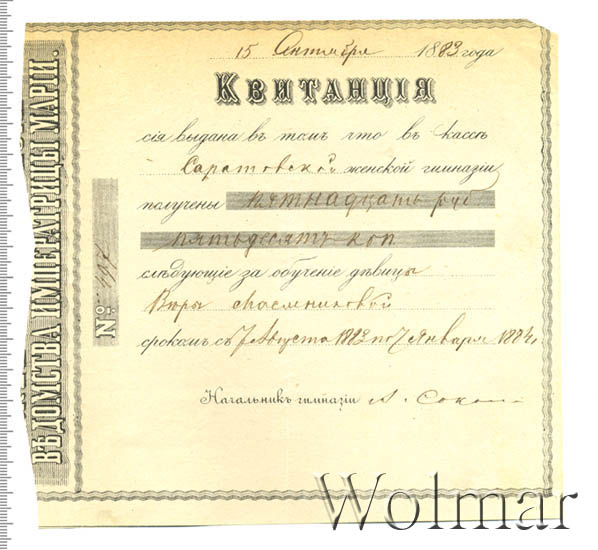 ВѢДОМСТВА ИМПЕРАТРИЦЫ МАРІИ.
15 Сентября 1883 года
КВИТАНЦІЯ
сія выдана въ томъ что въ кассѣ
Саратовской женской гимназіи
получены пятнадцать руб
пятьдесятъ коп
слѣдующіе за обученіе дѣвицы
Вѣры
срокомъ съ 7 Августа 1883 по 7 Января 1884
Начальникъ гимназіи
№
Wolmar